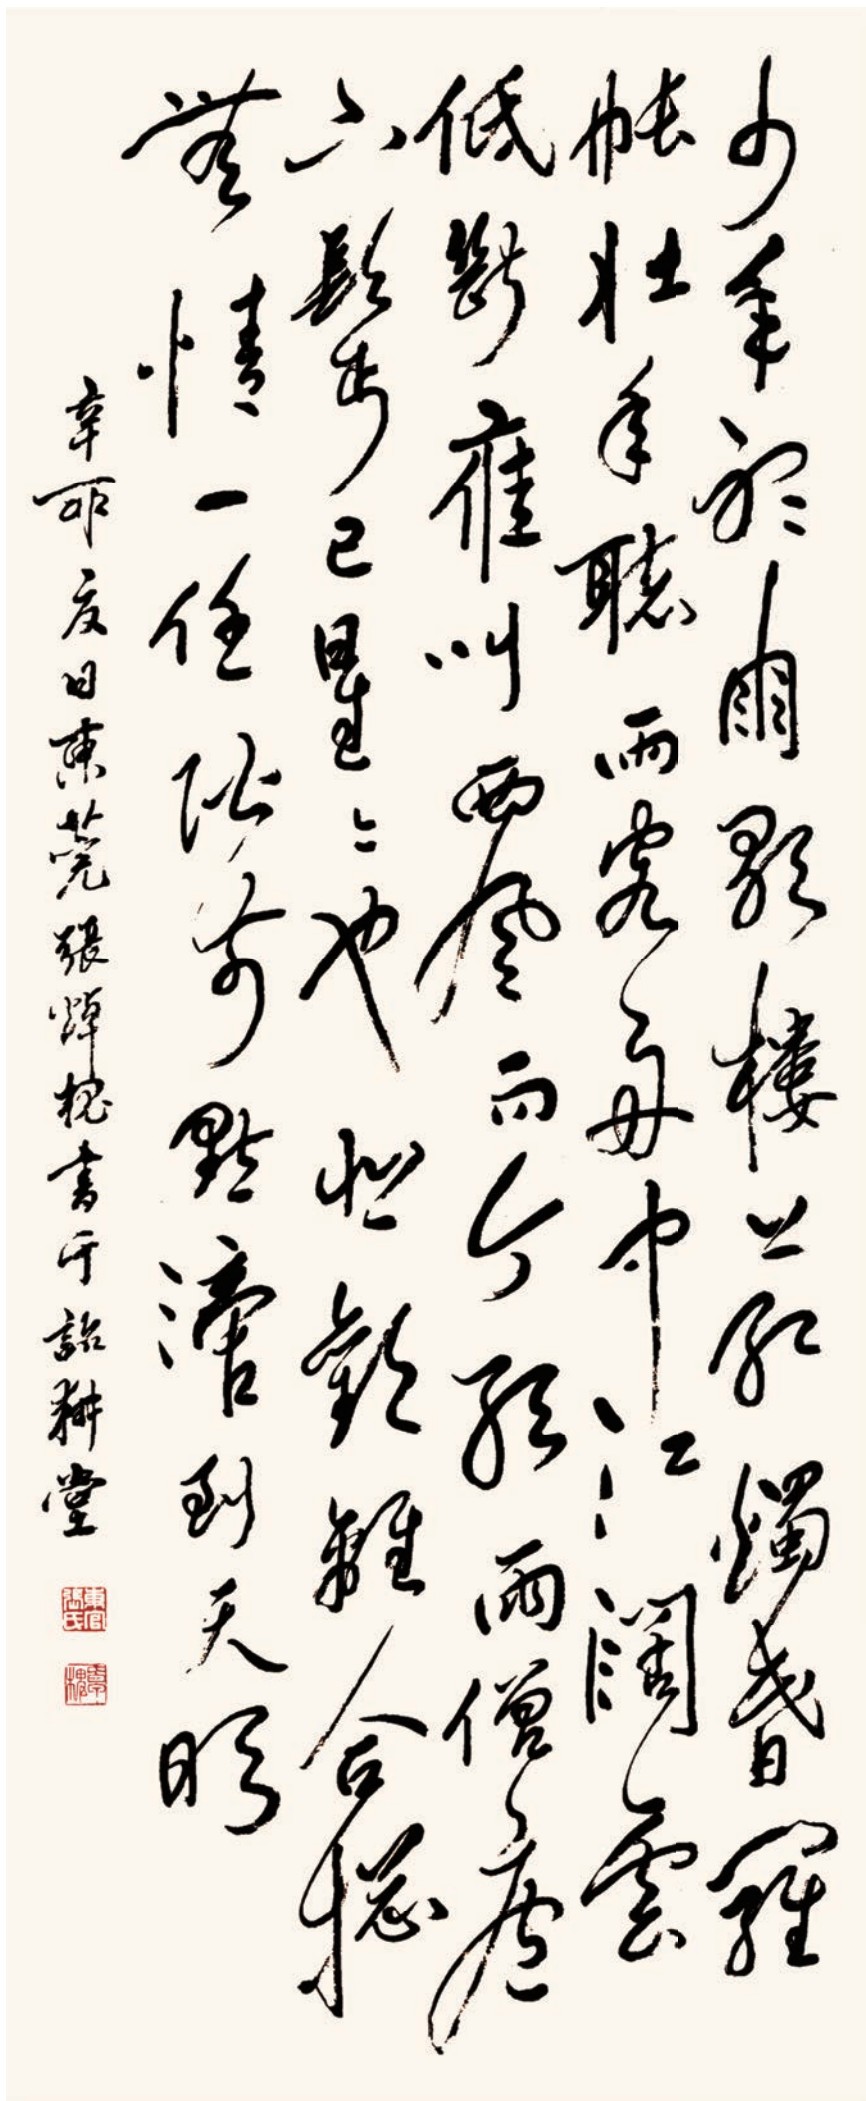 少年聽雨歌樓上紅燭昏羅
帳壯年聽雨客舟中江闊雲
低斷雁叫西風而今聽雨僧廬
下鬢已星〻也悲歡離合總
無情一任階前點滴到天明
辛卯夏日東莞張焯槐書于詒耕堂
東官張氏